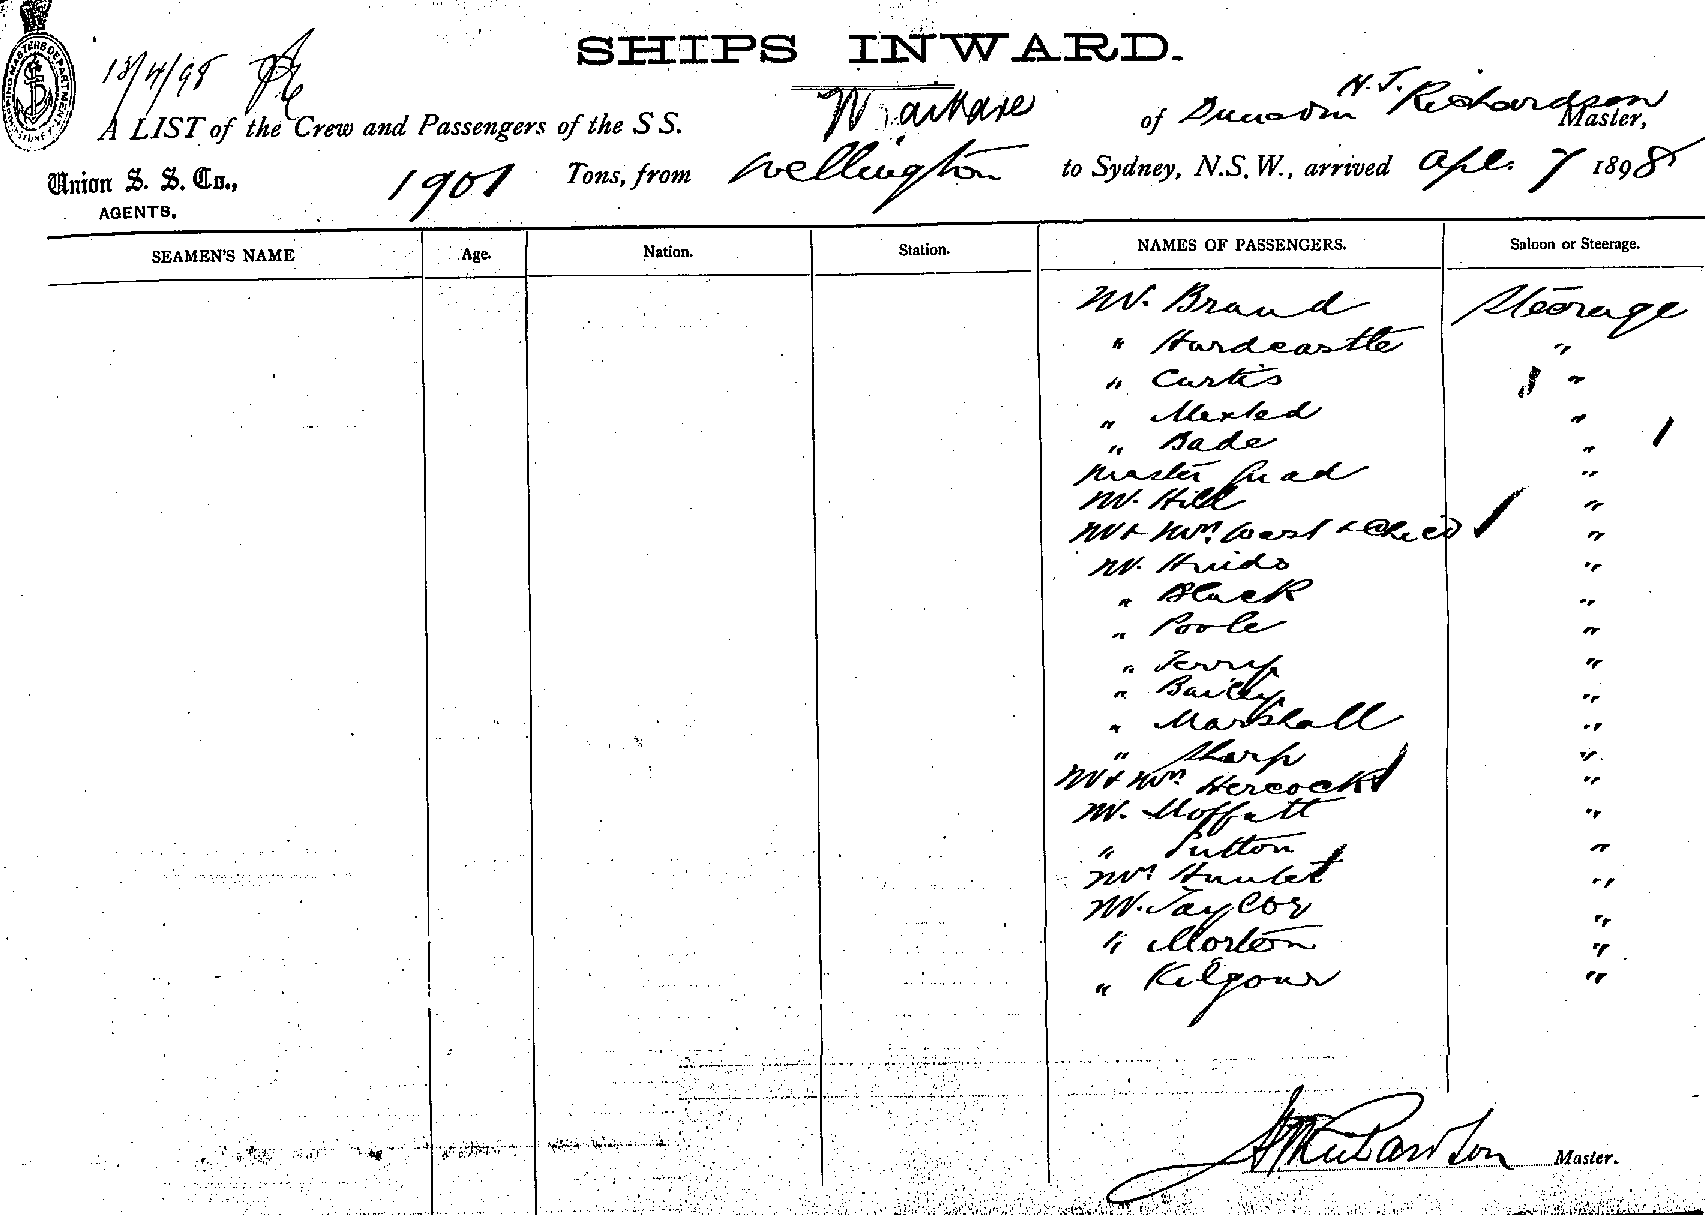 SHIPS INWARD.
13/4/98
H. J. Richardson
A LIST of the Crew and Passengers of the S S. Waikare of Dunedin Master,
Union S. S. Co., 1901 Tons, from Wellington to Sydney, N.S.W., arrived Apl. 7 1898
AGENTS.
SEAMEN'S NAME Age. Nation. Station. NAMES OF PASSENGERS. Saloon or Steerage.
Mr. Brand Steerage
" Hardcastle "
" Curtis "
" "
" Bade "
Master "
Mr. Hill "
Mr & Mrs. West & Child "
Mr. Hinds "
" Black "
" Poole "
" Terry "
" Baily "
" Marshall "
" Sharp "
Mr & Mrs Hercock "
Mr. Moffatt "
" Sutton "
Mrs "
Mr. Taylor "
" Morton "
" Kilgour "
HJRichardson Master.